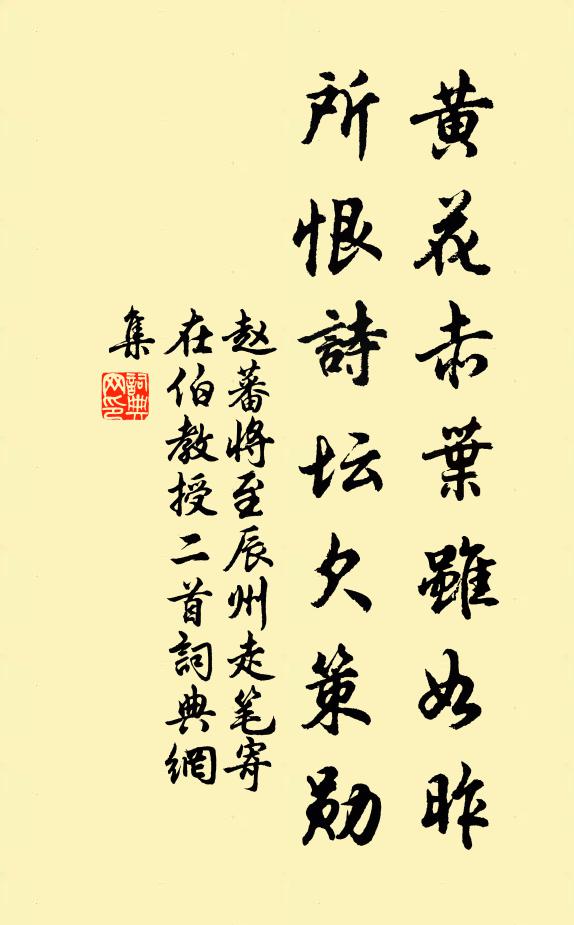 黄花赤葉雖如昨
所恨詩坛欠策勋
赵蕃将至辰州走笔寄
在伯教授二首詞典網
集
詞典
网印